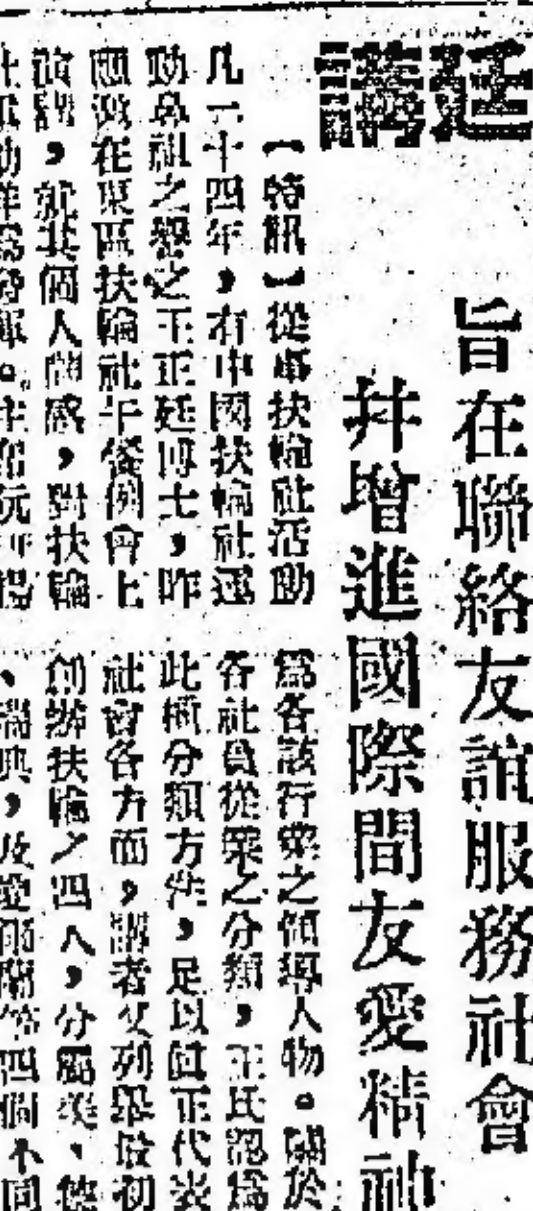 廷講
旨在聯絡友誼服務社會
并增進國際間友愛精神
【特訊】從事扶輪社活動
凡一十四年，有中國扶輪社運
動鼻祖之譽之王正廷博士，昨
應邀在東區扶輪社午餐例會上
演講，就其個人觀感，對扶輪
社
為各該行業之領導人物。關於
各社員從業之分類，王氏認為
此種分類方法，足以真正代表
社會各方面，講者又列舉最初
創辦扶輪之四人，分屬美、德
、瑞典，及愛爾蘭等四個不同